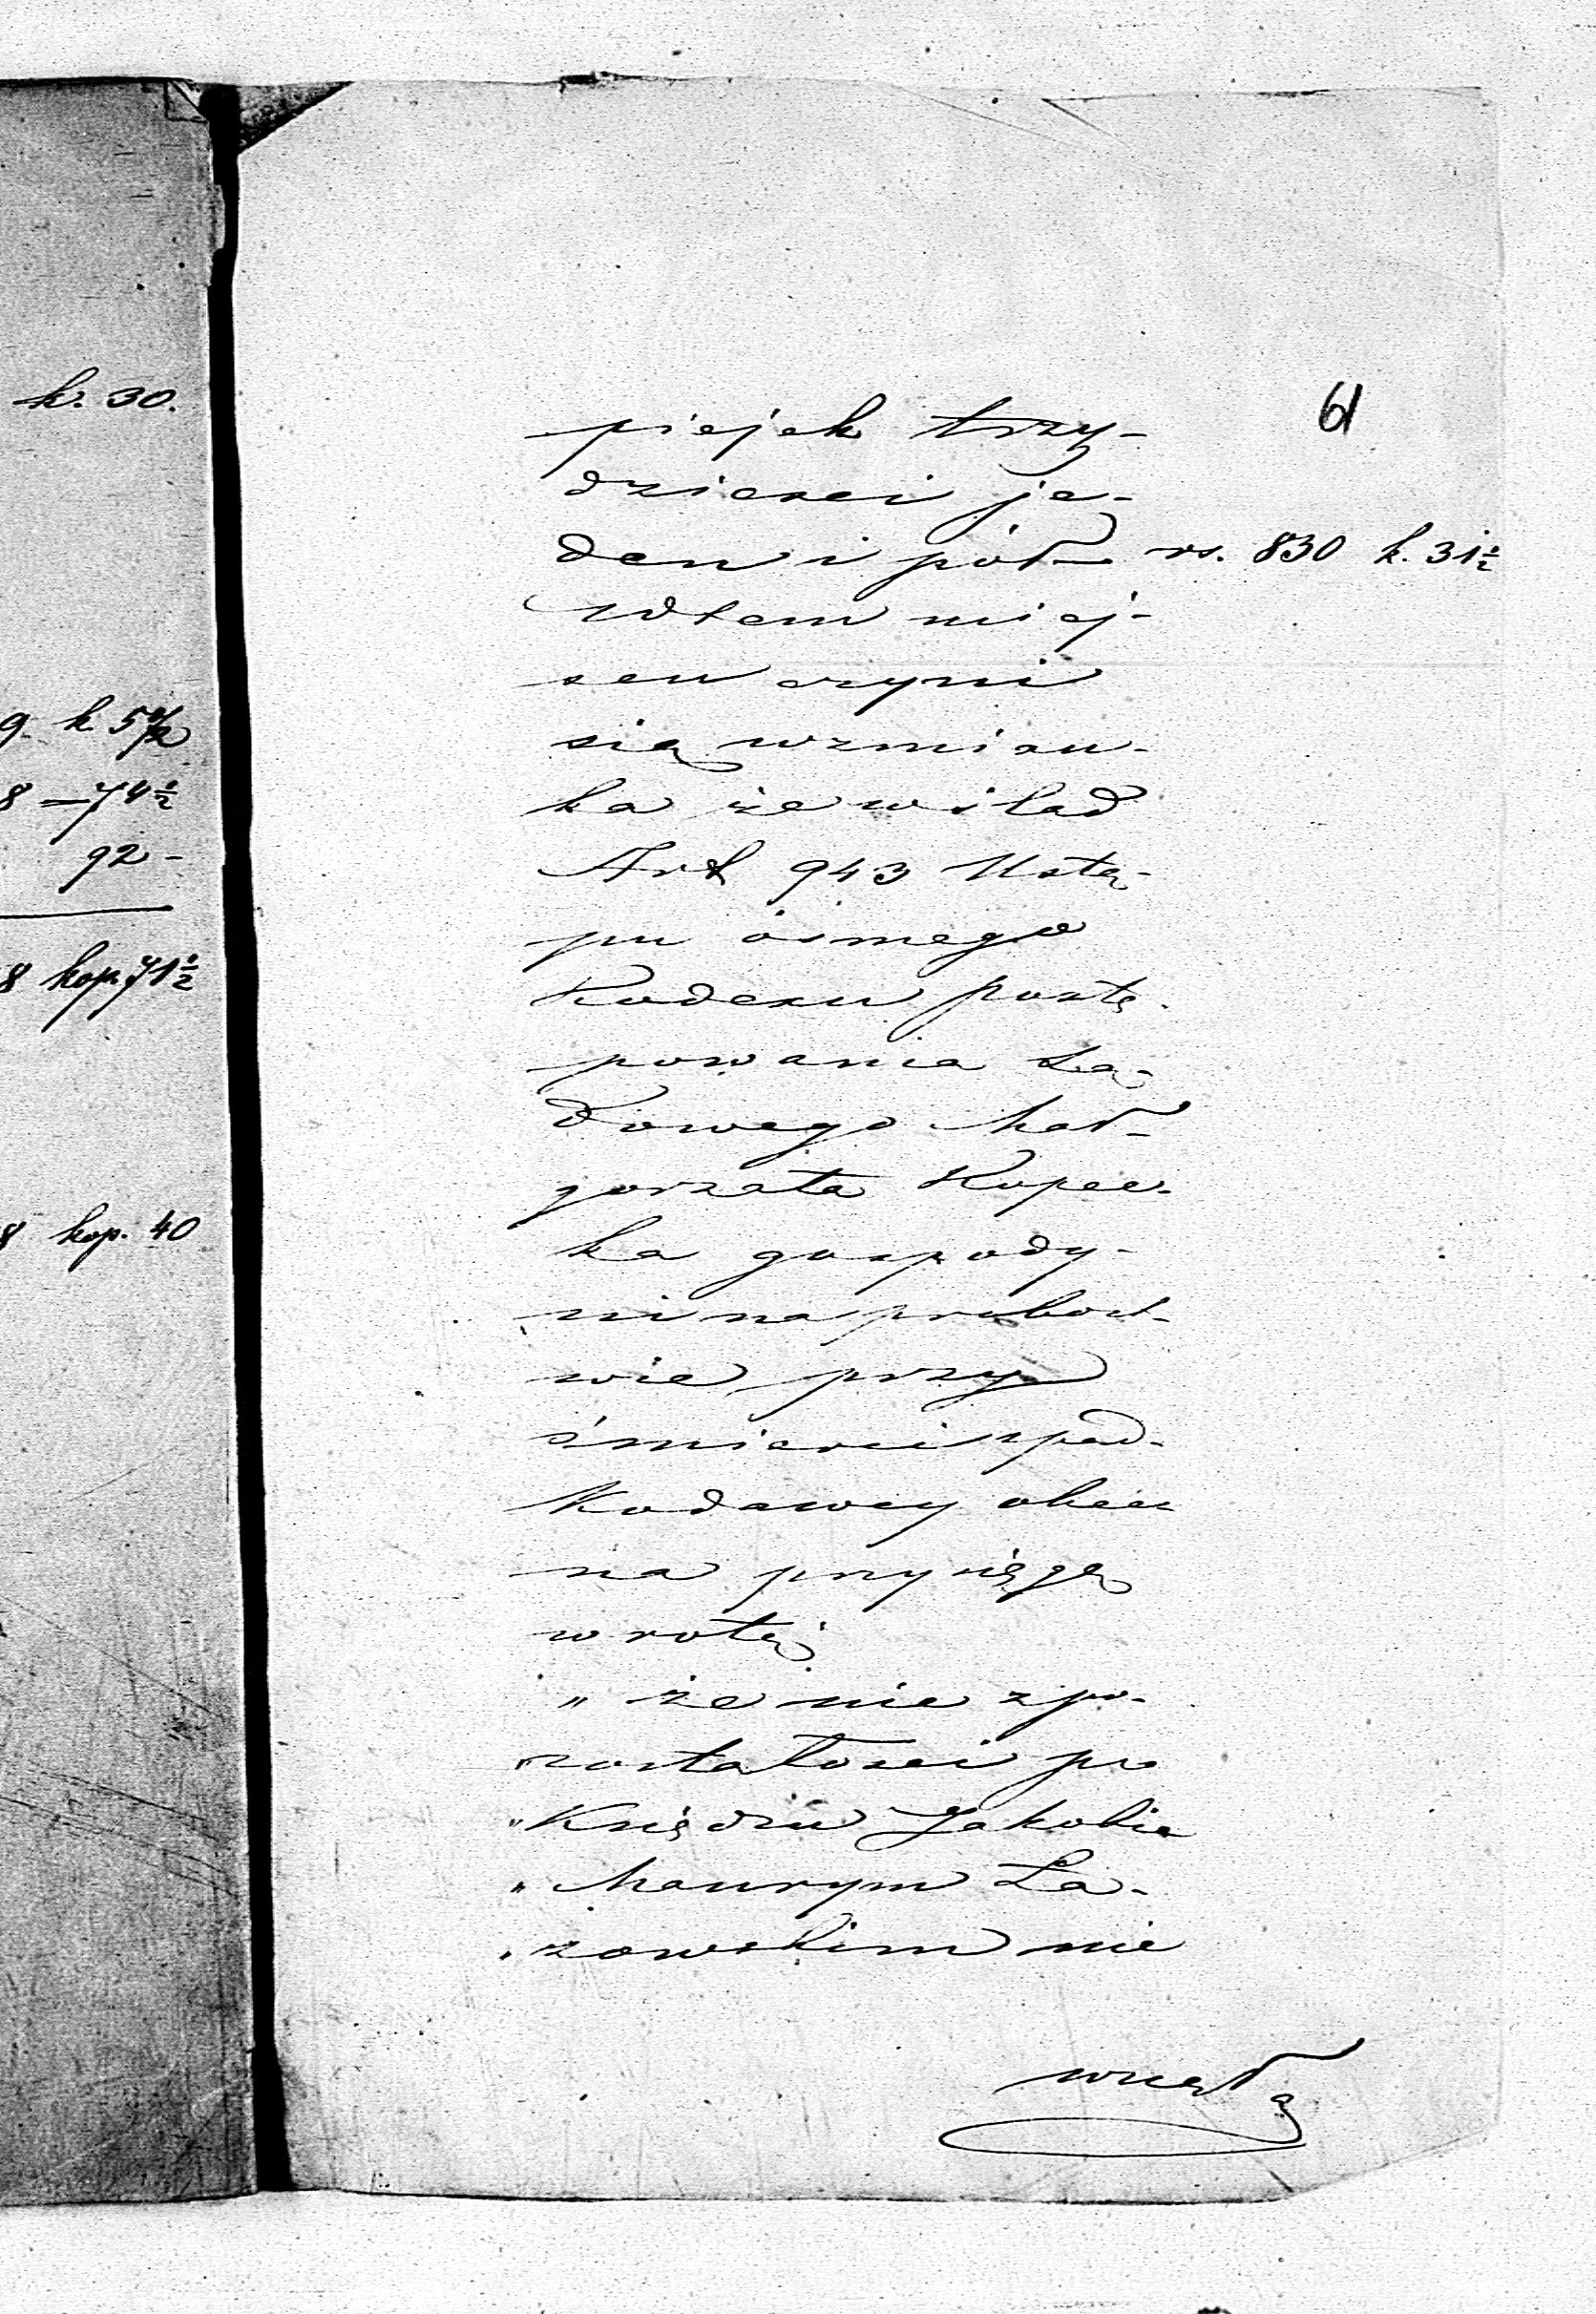 k. 30.
9 k. 5½
8 — 74½
92 -
8 kop. 71½
8 kop. 40
61
piejek trzy-
dzieści je-
den i pół — rs. 830 k. 31½
W tem miej-
scu czyni
się wzmian-
ka że wślad
Art 943 Ustę-
pu ósmego
Kodexu postę-
powania Są-
dowego Mał-
gorzata Kopec-
ka gospody-
ni na probost-
wie przy
śmierci spad-
kodawcy obec
na przysięgę
w rotę
„ że nie z po-
„ zostałości po
„ Księdzu Jakobie
„ Maurym Ła-
„ zowskim nie
wzięła